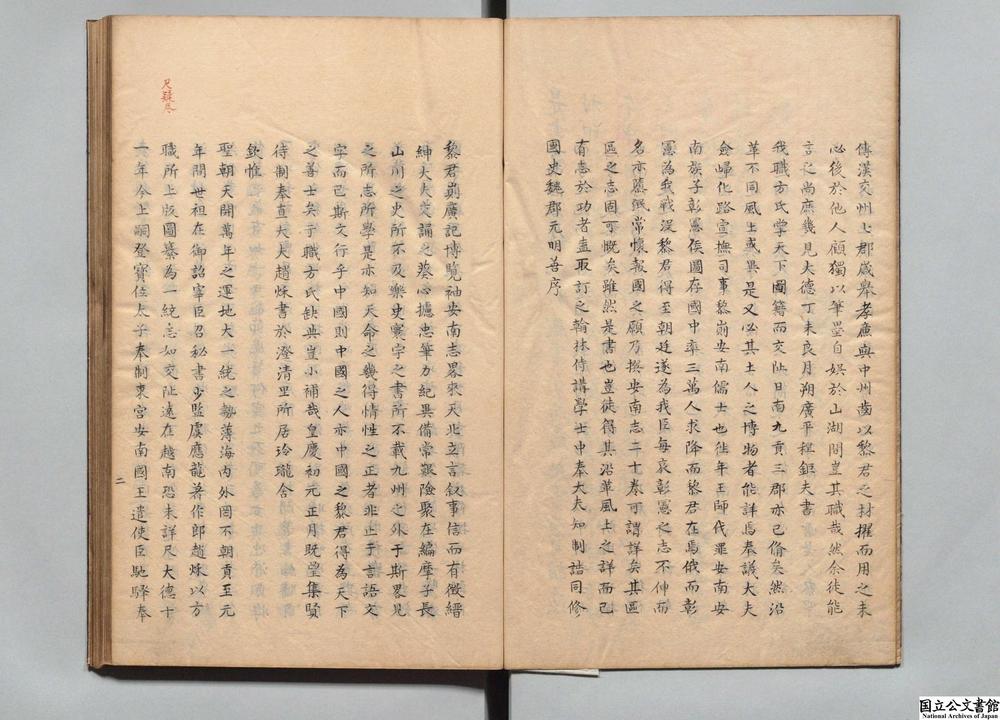 傳漢交州士郡歲舉孝廉與中州齒以黎君之材擢而用之未
必後於他人顧獨以筆墨自娛於山湖間豈其職哉然余徒能
言之尚庶幾見大德丁未良月朔廣平程鉅夫書
我職方氏掌天下圖籍而交阯日南九真三郡亦已俻矣然沿
革不同風土或異是又必其土人之博物者能詳焉奉議大夫
僉歸化路宣撫司事黎崱安南儒士也徃年王師伐罪安南安
南族子彰憲矦圖存國中率三萬人求降而黎君在焉俄而彰
憲為我戰沒黎君得至朝廷遂為我臣每哀彰憲之志不伸而
名亦蔑徴常懷報國之願乃撰安南志二十卷可謂詳矣其區
區之志固可慨矣雖然是書也豈徒得其沿革風土之詳而已
有志於功者盍取訂之翰林侍講學士中奉大夫知制誥同修
國史魏郡元明善序
黎君崱廣記博覽袖安南志畧來天北立言叙事信而有徴縉
紳大夫交誦之葵心攄忠筆力紀異備常艱險聚在編摩子長
山川之史所不及樂史寰宇之書所不載九州之外于斯畧見
之所志所學是亦知天命之幾得情性之正者非止于言語文
字而已斯文行乎中國則中國之人亦中國之黎君得為天下
之善士矣于職方氏缺典豈小補哉皇慶初元正月既望集賢
待制奉直大夫趙秌書於澄清里所居玲瓏舍
欽惟
聖朝天開萬年之運地大一統之勢薄海內外罔不朝貢至元
年間世祖在御詔宰臣召秘書少監虞應龍著作郎趙秌以方
職所上版圖纂為一統志如交阯遠在越南恐未詳尽大德十
一年今上嗣登寶位太子奉制東宮安南國王遣使臣馳驛奉
二
尺疑尽
国立公文書館
National Archives of Japan